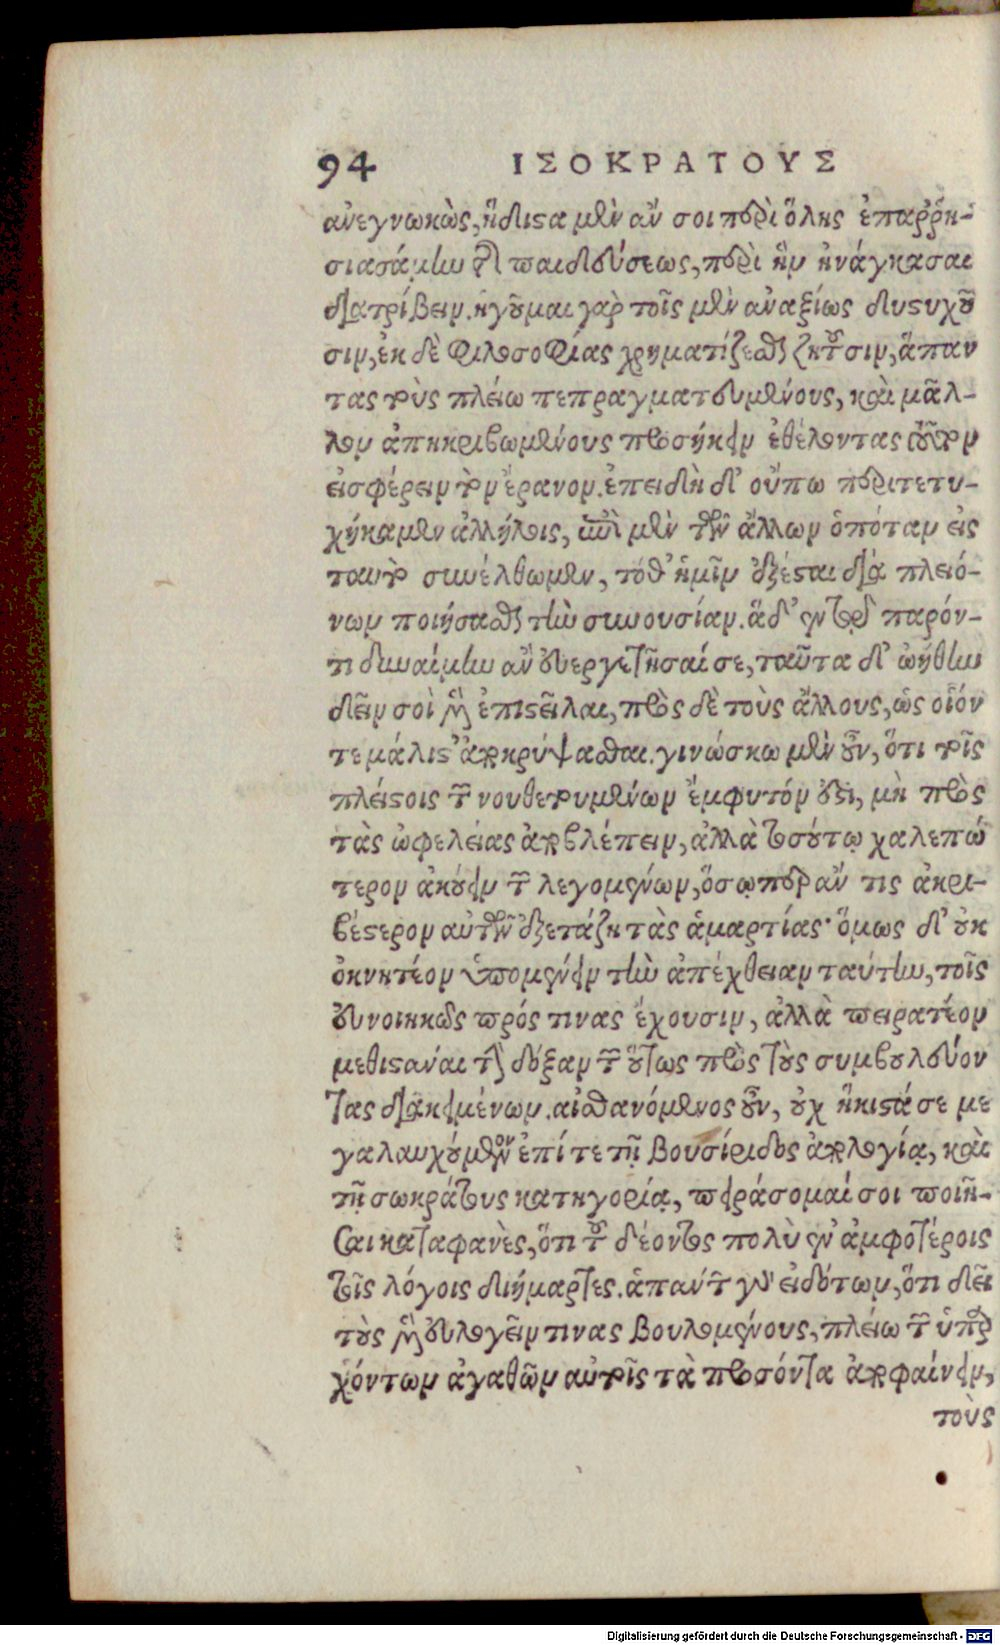 94 ΙΣΟΚΡΑΤΟΥΣ
ἀνεγνωκὼς, ἥδιστα μὲν ἄν σοι περὶ ὅλης ἐπαῤῥη-
σιασάμην τῆς παιδεύσεως, περὶ ἣν ἠνάγκασαι
διατρίβειν. ἡγοῦμαι γὰρ τοῖς μὲν ἀναξίως δυστυχοῦ
σιν, ἐκ δὲ φιλοσοφίας χρηματίζεσθαι ζητοῦσιν, ἅπαν
τας τοὺς πλείω πεπραγματευμένους, καὶ μᾶλ-
λον ἀπηκριβωμένους προσήκειν ἐθέλοντας τοῦτον
εἰσφέρειν τὸν ἔρανον. ἐπειδὴ δ' οὔπω περιτετυ-
χήκαμεν ἀλλήλοις, περὶ μὲν τῶν ἄλλων ὁπόταν εἰς
ταυτὸ συνέλθωμεν, τόθ' ἡμῖν ἐξέσται διὰ πλειό-
νων ποιήσασθαι τὴν συνουσίαν. ἃ δ' ἐν τῷ παρόν-
τι δυναίμην ἂν εὐεργετῆσαί σε, ταῦτα δ' ᾠήθην
δεῖν σοὶ μὲν ἐπιστεῖλαι, πρὸς δὲ τοὺς ἄλλους, ὡς οἷόν
τε μάλιστ' ἀποκρύψασθαι. γινώσκω μὲν οὖν, ὅτι τοῖς
πλείστοις τῶν νουθετουμένων ἔμφυτόν ἐστι, μὴ πρὸς
τὰς ὠφελείας ἀποβλέπειν, ἀλλὰ τοσούτῳ χαλεπώ
τερον ἀκούειν τῶν λεγομένων, ὅσῳπερ ἄν τις ἀκρι-
βέστερον αὐτῶν ἐξετάζῃ τὰς ἁμαρτίας· ὅμως δ' οὐκ
ὀκνητέον ὑπομένειν τὴν ἀπέχθειαν ταύτην, τοῖς
εὐνοικῶς πρός τινας ἔχουσιν, ἀλλὰ πειρατέον
μεθιστάναι τὴν δόξαν τῶν οὕτως πρὸς τοὺς συμβουλεύον
τας διακειμένων. αἰσθανόμενος οὖν, οὐχ ἥκιστά σε με
γαλαυχούμενον ἐπί τε τῇ Βουσίριδος ἀπολογίᾳ, καὶ
τῇ σωκράτους κατηγορίᾳ, πειράσομαί σοι ποιῆ-
σαι καταφανὲς, ὅτι τοῦ δέοντος πολὺ ἐν ἀμφοτέροις
τοῖς λόγοις διήμαρτες. ἁπάντων γὰρ εἰδότων, ὅτι δεῖ
τοὺς μὲν εὐλογεῖν τινας βουλομένους, πλείω τῶν ὑπαρ
χόντων ἀγαθῶν αὐτοῖς τὰ προσόντα ἀποφαίνειν,
τοὺς
Digitalisierung gefördert durch die Deutsche Forschungsgemeinschaft - DFG